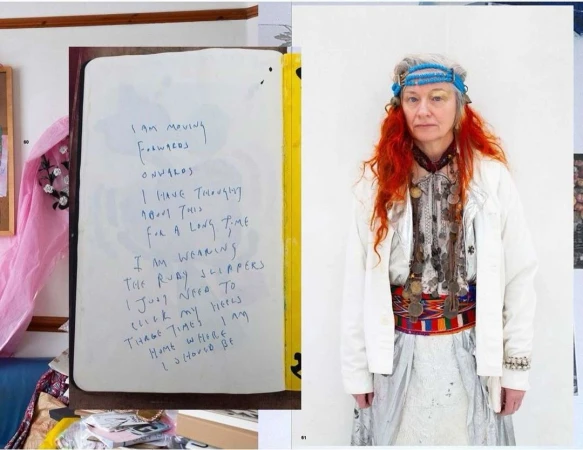 I AM MOVING
FORWARDS
ONWARDS
I HAVE THOUGHT
ABOUT THIS
FOR A LONG TIME
I AM WEARING
THE RUBY SLIPPERS
I JUST NEED TO
CLICK MY HEELS
THREE TIMES I AM
HOME WHERE
I SHOULD BE
60
61